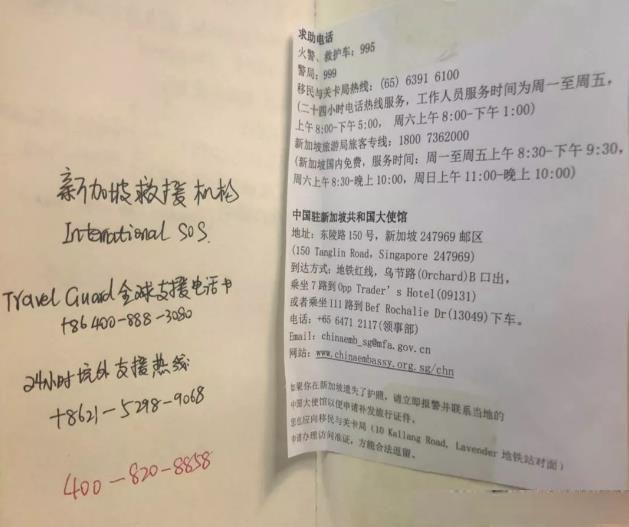 新加坡救援机构
International SOS.
Travel Guard 全球支援电话卡
+86 400-888-3080
24小时境外支援热线
+8621-5298-9068
400-820-8858
求助电话
火警、救护车：995
警局：999
移民与关卡局热线：(65) 6391 6100
(二十四小时电话热线服务，工作人员服务时间为周一至周五，
上午 8:00-下午 5:00， 周六上午 8:00-下午 1:00)
新加坡旅游局旅客专线：1800 7362000
(新加坡国内免费，服务时间：周一至周五上午 8:30-下午 9:30，
周六上午 8:30-晚上 10:00，周日上午 11:00-晚上 10:00)
中国驻新加坡共和国大使馆
地址：东陵路 150 号，新加坡 247969 邮区
(150 Tanglin Road, Singapore 247969)
到达方式：地铁红线，乌节路(Orchard)B 口出，
乘坐 7 路到 Opp Trader's Hotel(09131)
或者乘坐 111 路到 Bef Rochalie Dr(13049)下车。
电话：+65 6471 2117(领事部)
Email: chinaemb_sg@mfa.gov.cn
网站：www.chinaembassy.org.sg/chn
如果你在新加坡遗失了护照，请立即报警并联系当地的
中国大使馆以便申请补发旅行证件。
您也应向移民与关卡局 (10 Kallang Road, Lavender 地铁站对面)
申请办理访问准证，方能合法逗留。